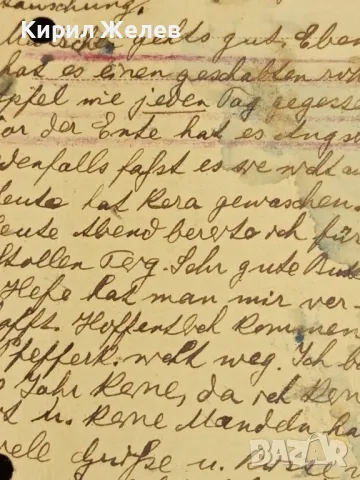 Кирил Желев
täuschung.
gehts gut. Eben
hat es einen geschabten
apfel wie jeden Tag gegess
vor der Ente hat es Angst
edenfalls faßt es sie nicht a
Heute hat Kera gewaschen.
Heute Abend bereite ich für
Stollen Teig. Sehr gute But
Hefe hat man mir ver-
Hoffentlich kommen
Pfefferk. nicht weg. Ich b
Jahr keine, da ich kein
u. keine Mandeln ha
viele Grüße u. Küsse
bazar